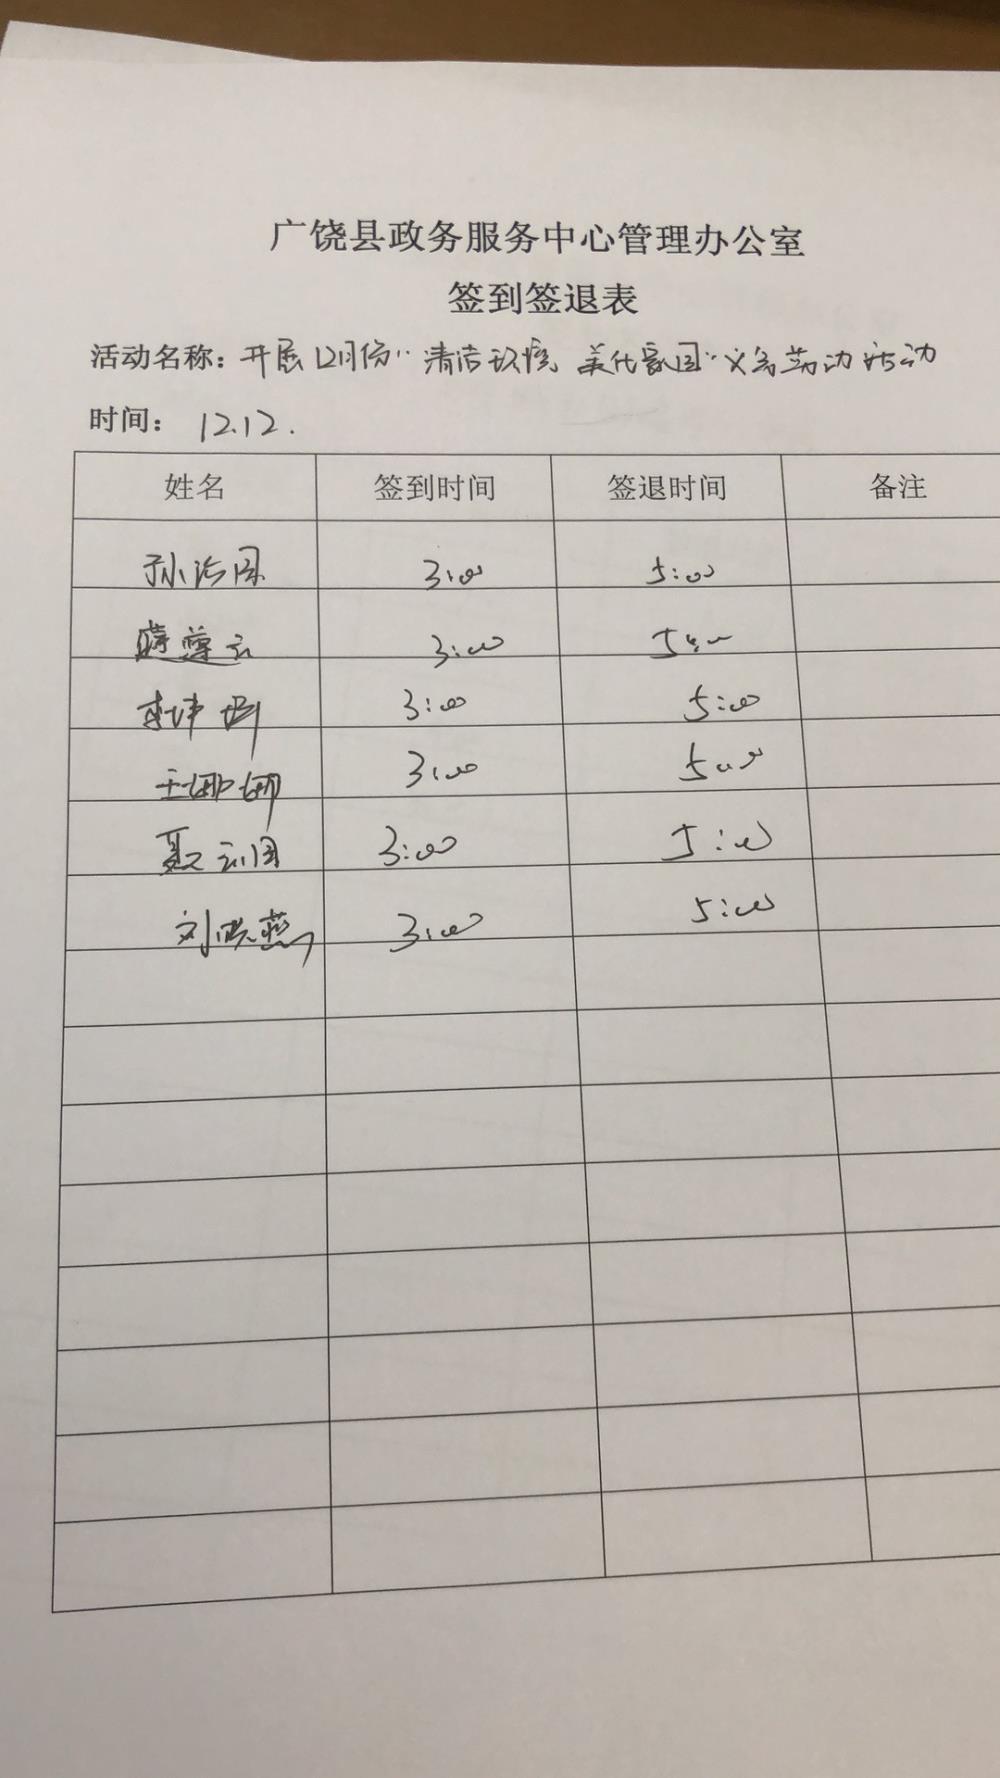 广饶县政务服务中心管理办公室
签到签退表
活动名称：开展12月份"清洁环境 美化家园"义务劳动活动
时间： 12.12.
姓名 签到时间 签退时间 备注
3:00 5:00
3:00 5:00
3:00 5:00
王娜娜 3:00 5:00
聂云国 3:00 5:00
刘晓燕 3:00 5:00